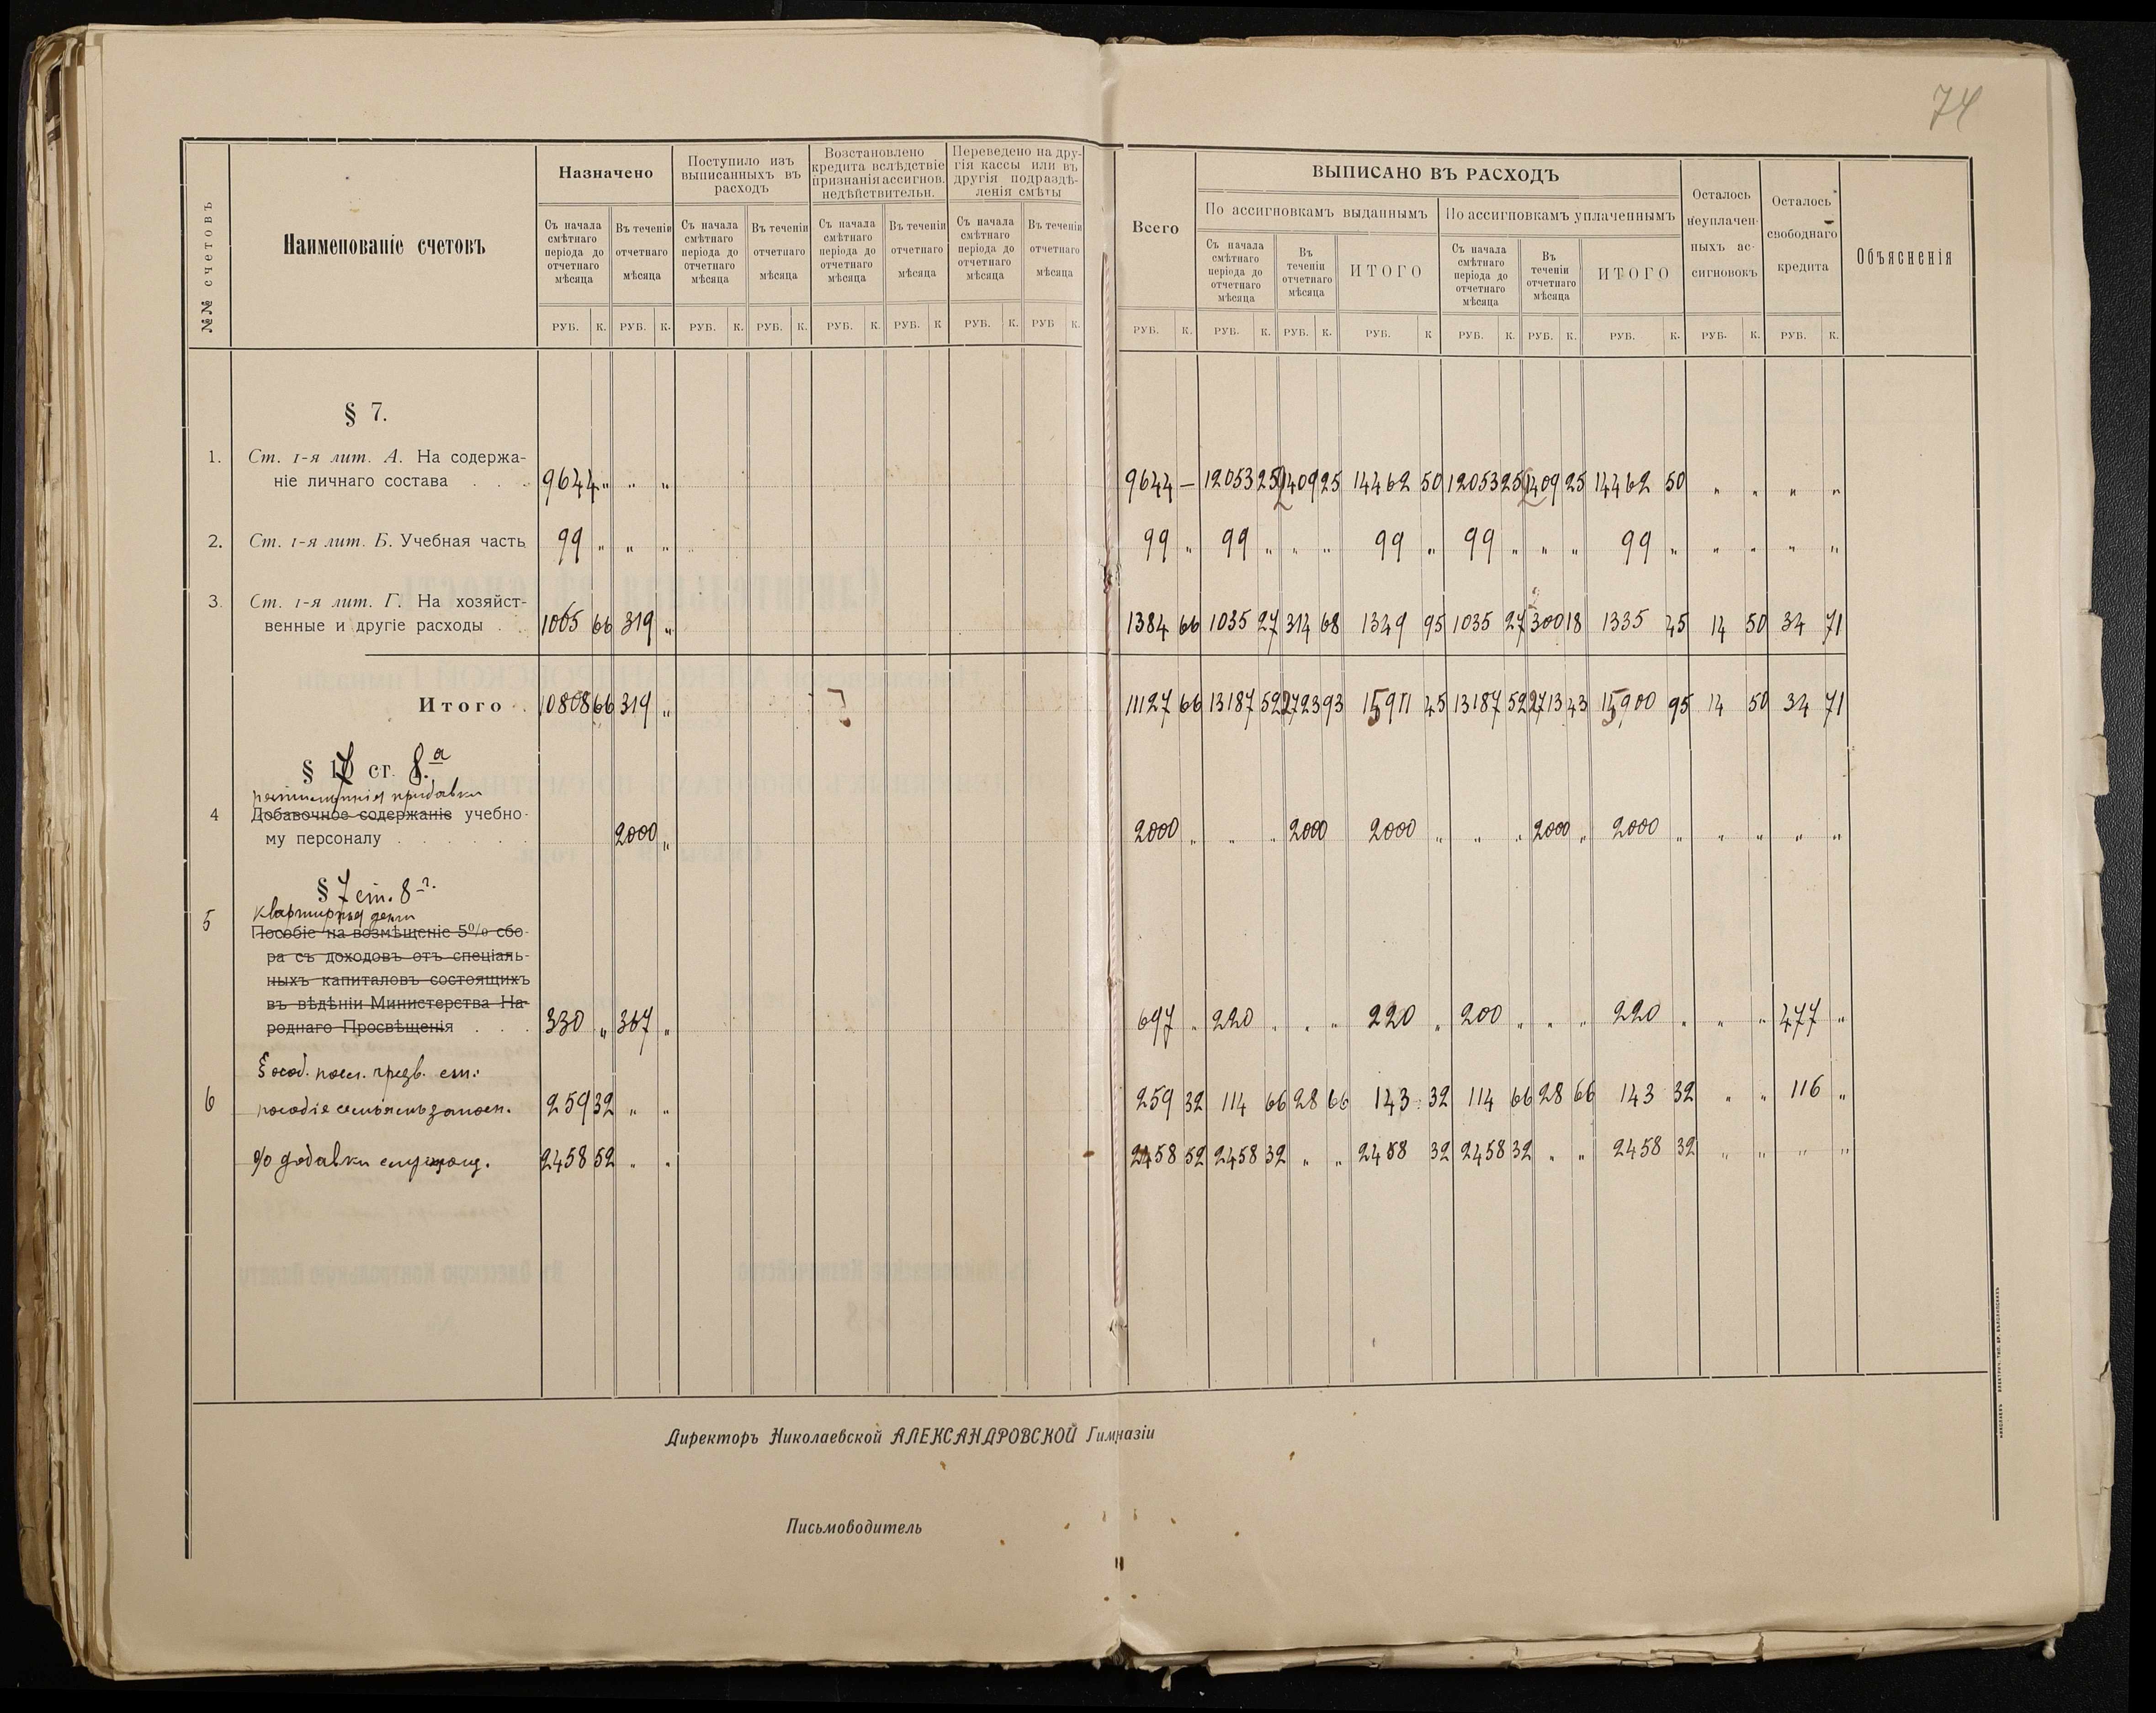 74
№№ счетовъ
Наименованіе счетовъ
Назначено
Поступило изъ
выписанныхъ въ
расходъ
Возстановлено
кредита вслѣдствіе
признанія ассигнов.
недѣйствительн.
Переведено на дру-
гія кассы или въ
другія подраздѣ-
ленія смѣты
Всего
ВЫПИСАНО ВЪ РАСХОДЪ
По ассигновкамъ выданнымъ
По ассигновкамъ уплаченнымъ
Осталось
неуплачен-
ныхъ ас-
сигновокъ
Осталось
свободнаго
кредита
Объясненія
Съ начала
смѣтнаго
періода до
отчетнаго
мѣсяца
Въ теченіи
отчетнаго
мѣсяца
Съ начала
смѣтнаго
періода до
отчетнаго
мѣсяца
Въ теченіи
отчетнаго
мѣсяца
Съ начала
смѣтнаго
періода до
отчетнаго
мѣсяца
Въ теченіи
отчетнаго
мѣсяца
Съ начала
смѣтнаго
періода до
отчетнаго
мѣсяца
Въ теченіи
отчетнаго
мѣсяца
Съ начала
смѣтнаго
періода до
отчетнаго
мѣсяца
Въ
теченіи
отчетнаго
мѣсяца
ИТОГО
Съ начала
смѣтнаго
періода до
отчетнаго
мѣсяца
Въ
теченіи
отчетнаго
мѣсяца
ИТОГО
РУБ. К. РУБ. К. РУБ. К. РУБ. К. РУБ. К. РУБ. К РУБ. К. РУБ К. РУБ. К. РУБ. К. РУБ. К. РУБ. К РУБ. К. РУБ. К. РУБ. К. РУБ. К. РУБ. К.
§ 7.
1. Ст. 1-я лит. А. На содержа-
ніе личнаго состава . . . 9644 „ „ „ 9644 — 12053 25 2409 25 14462 50 12053 25 2409 25 14462 50 „ „ „ „
2. Ст. 1-я лит. Б. Учебная часть 99 „ „ „ 99 „ 99 „ „ „ 99 „ 99 „ „ „ 99 „ „ „ „ „
3. Ст. 1-я лит. Г. На хозяйст-
венные и другіе расходы . 1065 66 319 „ 1384 66 1035 27 314 68 1349 95 1035 27 300 18 1335 45 14 50 34 71
Итого . 10808 66 319 „ 11127 66 13187 52 2723 93 15911 45 13187 52 2713 43 15900 95 14 50 34 71
§ 7 ст. 8.а
придавки
4 Добавочное содержаніе учебно-
му персоналу . . . . . . 2000 „ 2000 „ „ „ 2000 2000 „ „ „ 2000 „ 2000 „ „ „ „ „
§ 7 ст. 8-г.
5 квартирныя деньги
Пособіе на возмѣщеніе 5% сбо-
ра съ доходовъ отъ спеціаль-
ныхъ капиталовъ состоящихъ
въ вѣдѣніи Министерства На-
роднаго Просвѣщенія . . . 330 „ 367 „ 697 „ 220 „ „ „ 220 „ 200 „ „ „ 220 „ „ „ 477 „
§ особ. чрезв. см.:
6 пособіе семьямъ запасн. 259 32 „ „ 259 32 114 66 28 66 143 32 114 66 28 66 143 32 „ „ 116 „
% добавки служащ. 2458 52 „ „ 2458 52 2458 32 „ „ 2458 32 2458 32 „ „ 2458 32 „ „ „ „
Директоръ Николаевской АЛЕКСАНДРОВСКОЙ Гимназіи
Письмоводитель